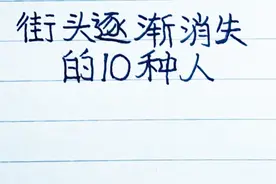 街头逐渐消失
的10种人